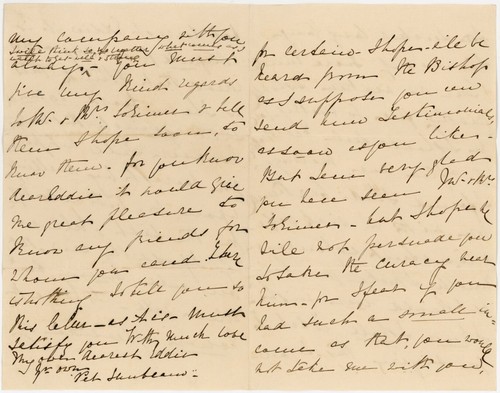 my company with you
I will think so, no matter what comes as I
wish to get well & strong
always you must
give my kind regards
to Mr. & Mrs. Lorimer & tell
them I hope soon, to
know them - for you know
dear Eddie it would give
me great pleasure to
know any friends for
whom you cared. I have
nothing to tell you so
this letter - as it is - must
satisfy you. With much love
My own dearest Eddie
Yr. own
Pet Sunbeam -
for certain - I hope - he'll be
heard from the Bishop
as I suppose you can
send him Testimonials,
as soon as you like -
But I am very glad
you have seen Mr. & Mrs.
Lorimer - but I hope he
will not persuade you
to take the Curacy near
him - for I fear if you
had such a small in-
come as that, you would
not take me with you,